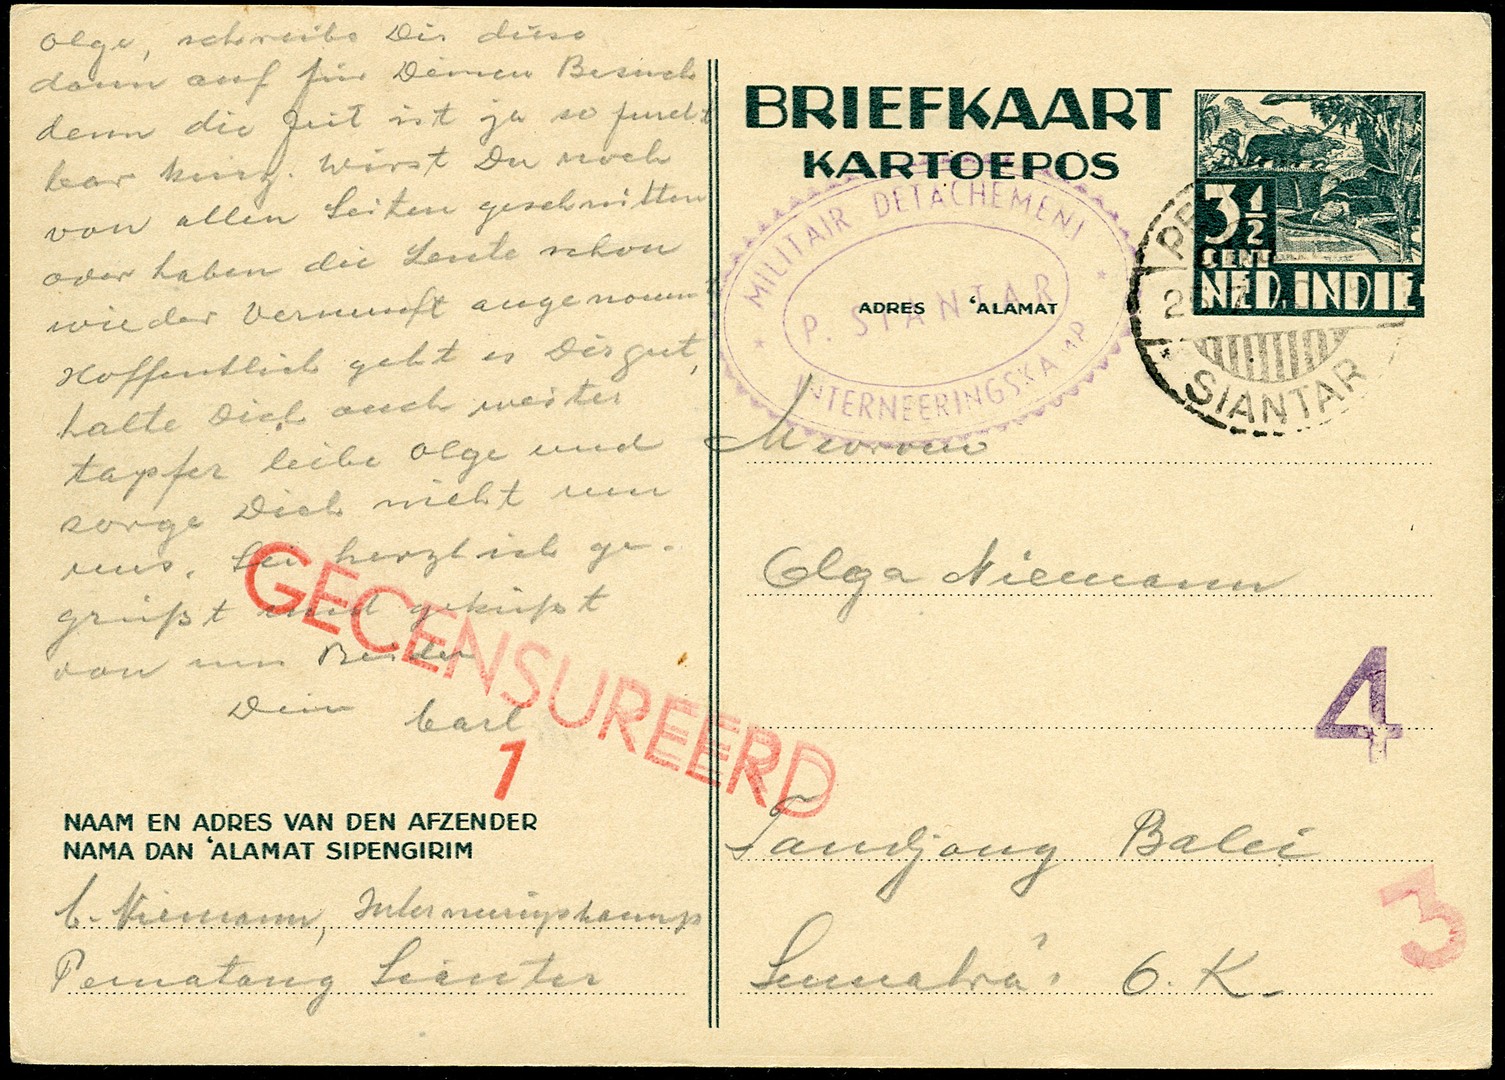 Olge, schreibe Dir diese
dann auf für Deinen Besuch
denn die Zeit ist ja so furcht
bar kurz. Wirst Du noch
von allen Seiten geschnitten
oder haben die Leute schon
wieder Vernunft angenommt
Hoffentlich geht es Dir gut,
halte Dich auch weiter
tapfer liebe Olge und
sorge Dich nicht um
uns. Sei herzlich ge-
grüßt und geküßt
von uns Beiden
Dein Carl
GECENSUREERD
1
NAAM EN ADRES VAN DEN AFZENDER
NAMA DAN 'ALAMAT SIPENGIRIM
C. Niemann, Interneeringskamp
Pematang Sianter
BRIEFKAART
KARTOEPOS
3½
CENT
NED. INDIE
MILITAIR DETACHEMENT
P. SIANTAR
INTERNEERINGSKAMP
ADRES 'ALAMAT
SIANTAR
Mevrouw
Olga Niemann
4
Tandjong Balei
3
Sumatra's O.K.